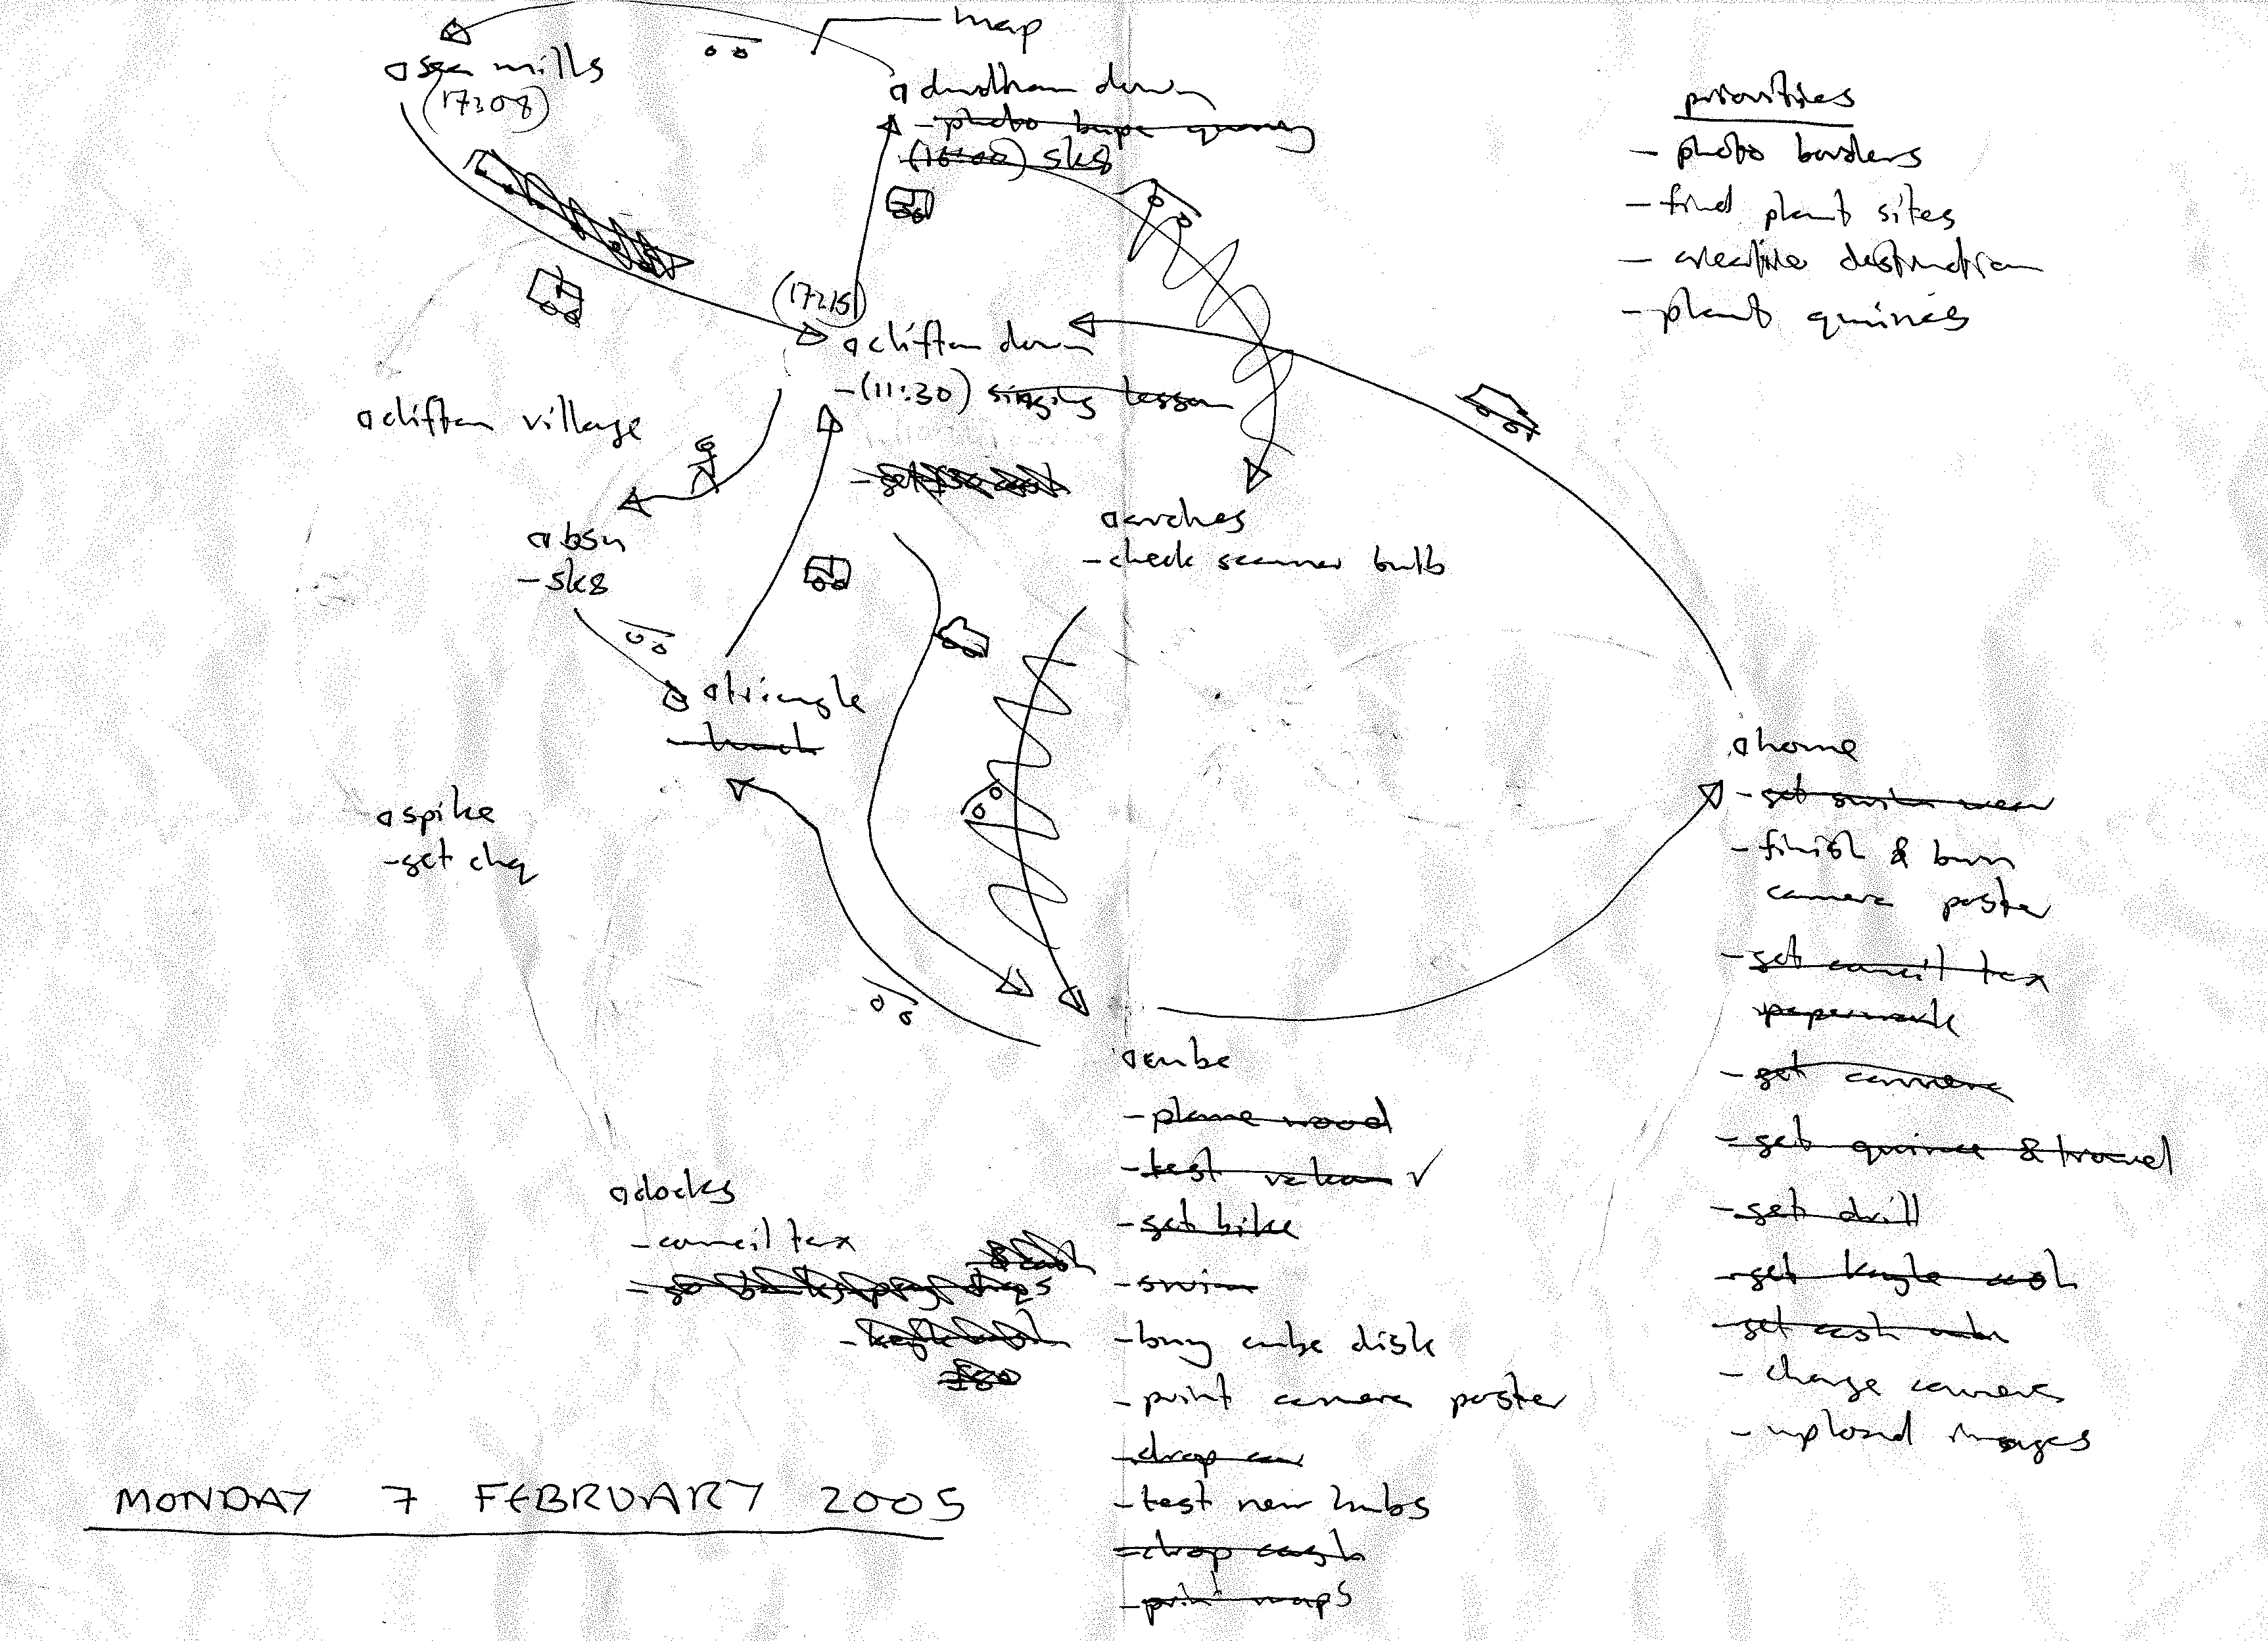 map
sea mills
(17:08)
durdham down
- photo bape quarry
(16:00) sk8
priorities
- photo borders
- find plant sites
- creative destruction
- plant quinces
(17:15)
clifton down
- (11:30) singing lesson
clifton village
bsn
- sk8
arches
- check scanner bulb
triangle
- lunch
spike
- get chq
home
- get swim wear
- finish & burn
camera poster
- get council tax
paperwork
- get camera
- get quince & trowel
- get drill
- get kayle cash
- get cash
- charge camera
- upload images
cube
- plane wood
- test ✓
- get bike
- swim
- buy cube disk
- print camera poster
- drop car
- test new hubs
- drop cash
- print maps
docks
- council tax
MONDAY 7 FEBRUARY 2005